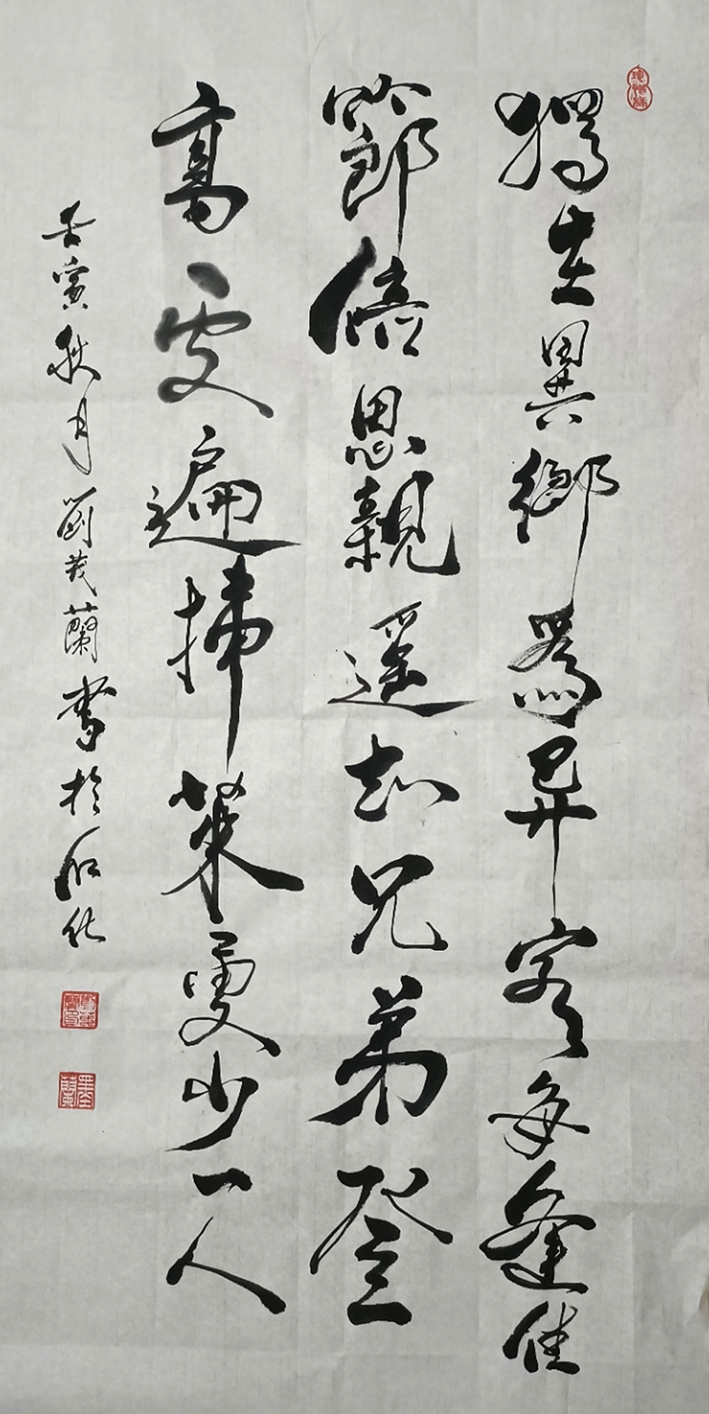 獨在異鄉為异客每逢佳
節倍思親遥知兄弟登
高處遍插茱萸少一人
壬寅秋月劉茂蘭書於